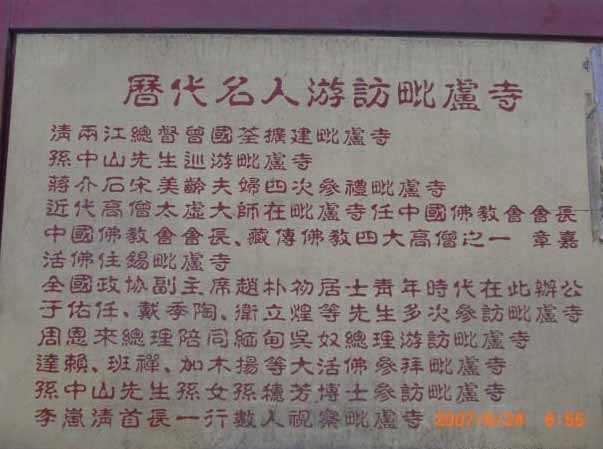 曆代名人游訪毗盧寺
清兩江總督曾國荃擴建毗盧寺
孫中山先生巡游毗盧寺
蔣介石宋美齡夫婦四次參禮毗盧寺
近代高僧太虛大師在毗盧寺任中國佛教會會長
中國佛教會會長、藏傳佛教四大高僧之一 章嘉
活佛住錫毗盧寺
全國政協副主席趙朴初居士青年時代在此辦公
于佑任、戴季陶、衛立煌等先生多次參訪毗盧寺
周恩來總理陪同緬甸吳奴總理游訪毗盧寺
達賴、班禪、加木揚等大活佛參拜毗盧寺
孫中山先生孫女孫穗芳博士參訪毗盧寺
李嵐清首長一行數人視察毗盧寺
2007/6/24 6:55